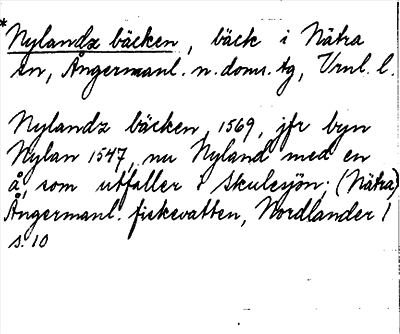 *Nylandz bäcken, bäck i Nätra
sn, Ångermanl. n. doms. tg, Vrnl. l.
Nylandz bäcken 1569, jfr byn
Nylan 1547, nu Nyland med en
å, som utfaller i Skulesjön; (Nätra)
Ångermanl. fiskevatten, Nordlander 1
s. 10